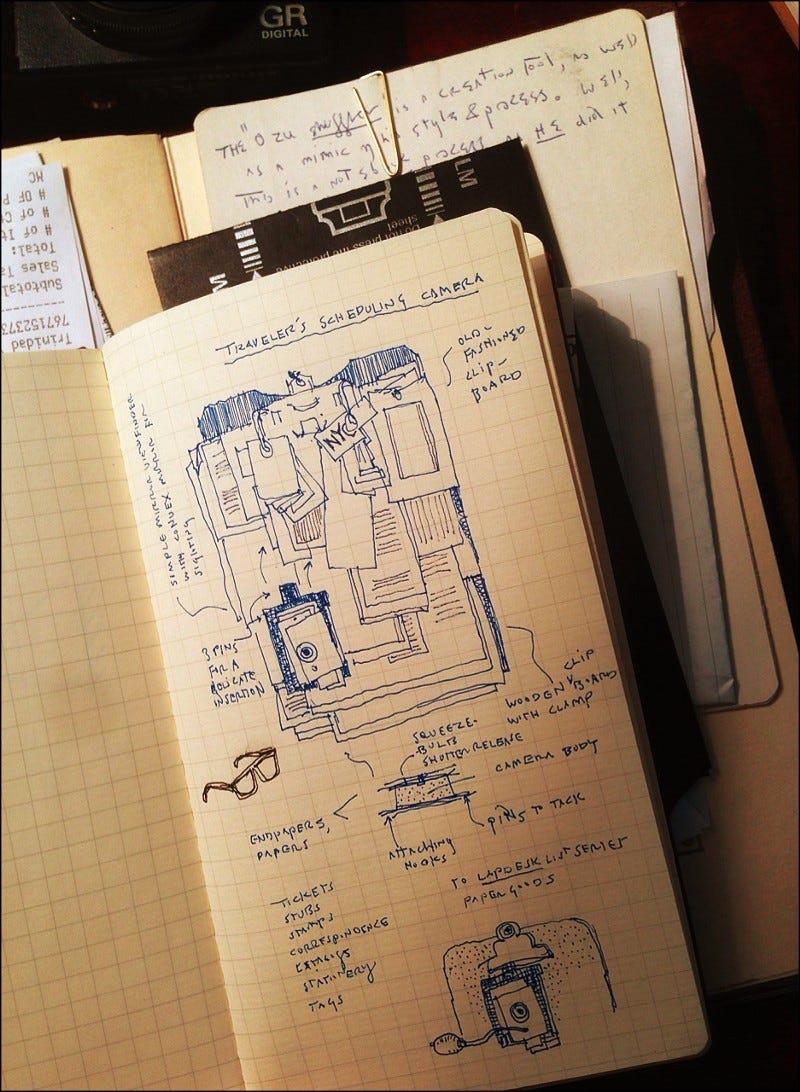 GR
DIGITAL
THE "OZU shuffler is A CREATION TOOL, AS WELL
AS A MIMIC of his STYLE & PROCESS. WELL,
This is A NOT SO PROCESS AS HE did it
LM
Do not press the protective
sheet
MC
# OF P
# of C
# of It
Total:
Sales Ta
Subtotal
767152373
Trinidad
TRAVELER'S SCHEDULING CAMERA
OLD-
FASHIONED
CLIP-
BOARD
NYC
SIMPLE MIRROR VIEWFINDER
WITH CONVEX MIRROR FOR
SIGHTING
3 PINS
FOR A
DELICATE
INSERTION
WOODEN CLIP BOARD
WITH CLAMP
SQUEEZE-
BULB
SHUTTER RELEASE
CAMERA BODY
PINS TO TACK
ATTACHING
HOOKS
ENDPAPERS,
PAPERS
TICKETS
STUBS
STAMPS
CORRESPONDENCE
CATALOGS
STATIONERY
TAGS
TO LAPDESK LIST SERIES
PAPER GOODS